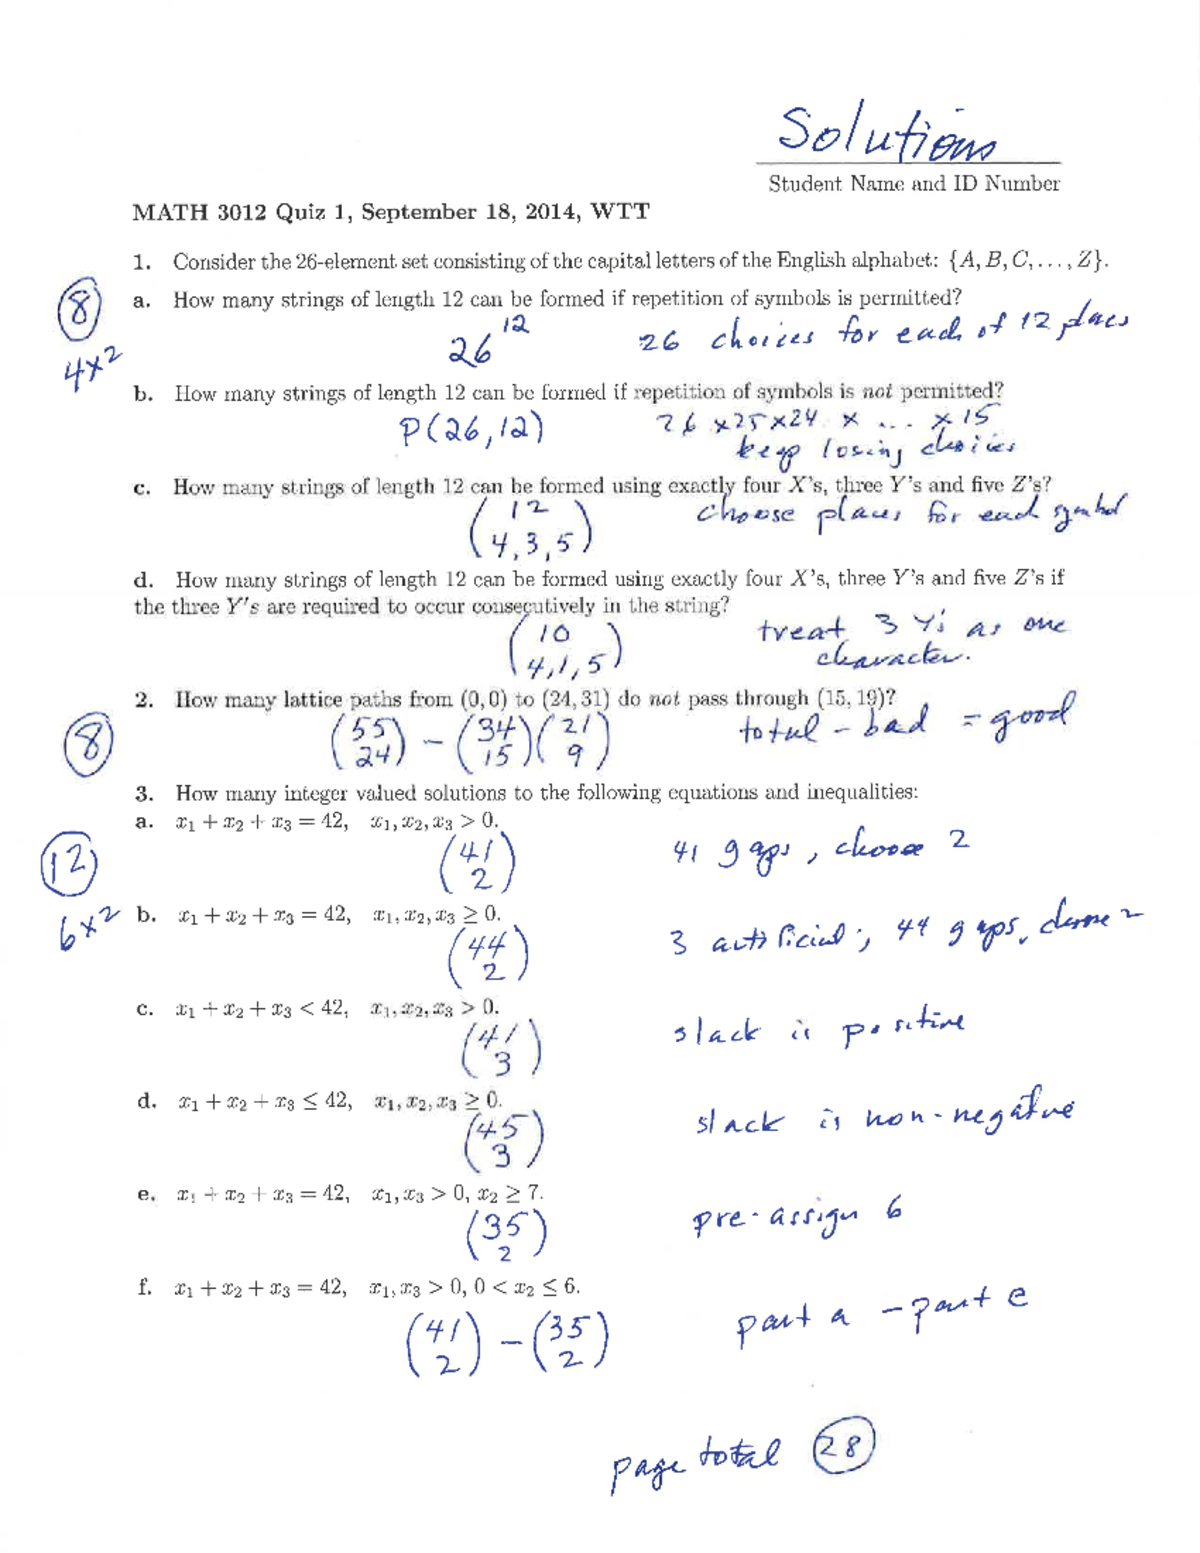 Solutions
Student Name and ID Number
MATH 3012 Quiz 1, September 18, 2014, WTT
1. Consider the 26-element set consisting of the capital letters of the English alphabet: {A, B, C, . . . , Z}.
8
a. How many strings of length 12 can be formed if repetition of symbols is permitted?
4x2
26^12 26 choices for each of 12 places
b. How many strings of length 12 can be formed if repetition of symbols is not permitted?
P(26,12) 26 x25x24 x ... x 15
keep losing choices
c. How many strings of length 12 can be formed using exactly four X's, three Y's and five Z's?
(12 choose places for each symbol
4,3,5)
d. How many strings of length 12 can be formed using exactly four X's, three Y's and five Z's if
the three Y's are required to occur consecutively in the string?
(10 treat 3 Y's as one
4,1,5) character.
2. How many lattice paths from (0,0) to (24,31) do not pass through (15,19)?
8
(55 24) - (34 15)(21 9) total - bad = good
3. How many integer valued solutions to the following equations and inequalities:
a. x1 + x2 + x3 = 42, x1, x2, x3 > 0.
12
(41 2) 41 gaps, choose 2
6x2
b. x1 + x2 + x3 = 42, x1, x2, x3 ≥ 0.
(44 2) 3 artificial; 44 gaps, choose 2
c. x1 + x2 + x3 < 42, x1, x2, x3 > 0.
(41 3) slack is positive
d. x1 + x2 + x3 ≤ 42, x1, x2, x3 ≥ 0.
(45 3) slack is non-negative
e. x1 + x2 + x3 = 42, x1, x3 > 0, x2 ≥ 7.
(35 2) pre-assign 6
f. x1 + x2 + x3 = 42, x1, x3 > 0, 0 < x2 ≤ 6.
(41 2) - (35 2) part a - part e
page total 28